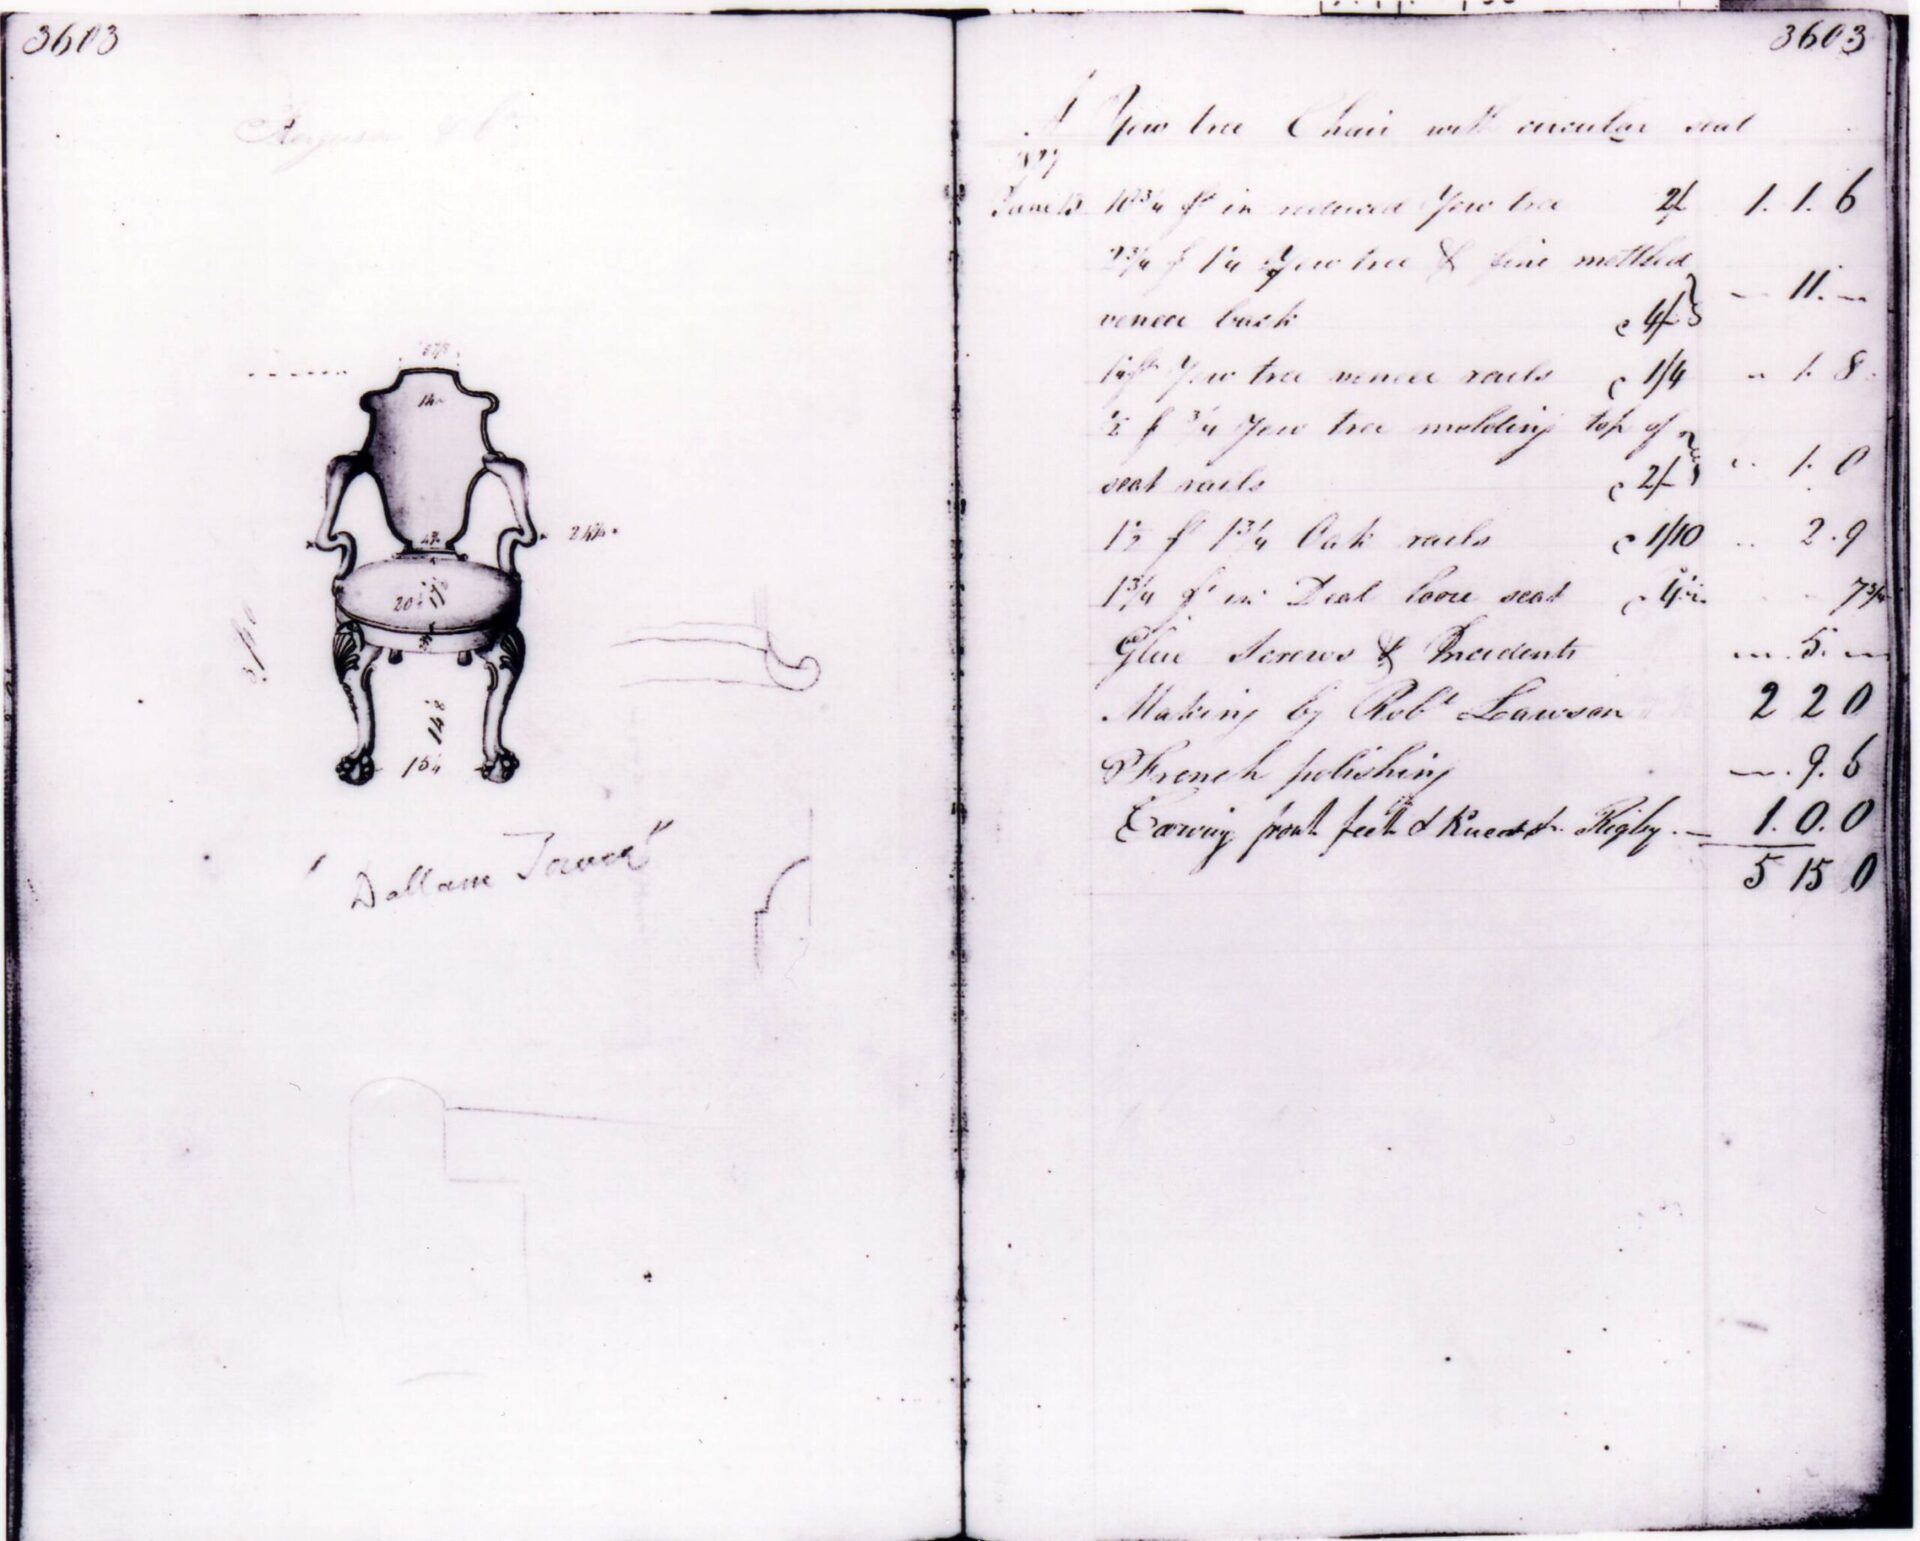 3603
Ferguson & Co
14
20
14 8
15¼
"Dallam Tower"
3603
A Yew tree Chair with circular seat
June 13 10¾ ft in reduced Yew tree 2/ 1. 1. 6
2¾ f 1¼ Yew tree & fine mottled
veneer back @ 4/ - 11. -
1¼ ft Yew tree veneer rails @ 1/4 .. 1. 8
½ f ¾ Yew tree molding top of
seat rails @ 2/- .. 1. 0
1½ ft 1¾ Oak rails @ 1/10 .. 2. 9
1¾ ft in Deal loose seat @ 4½ 7¾
Glue Screws & Incidents - 5. -
Making by Robt Lawson 2 2 0
French polishing - 9. 6
Carving front feet & Knees Rigby - 1. 0. 0
5 15 0